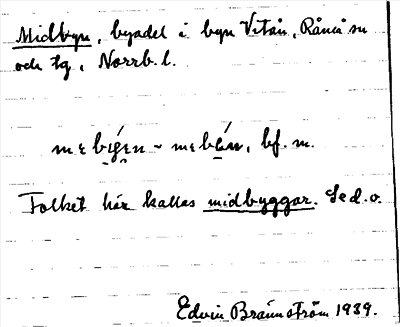 Midbyn, byadel i byn Vitån, Råneå sn
och tg, Norrb. l.
Folket här kallas midbyggar. Se d.o.
Edvin Brännström 1939.